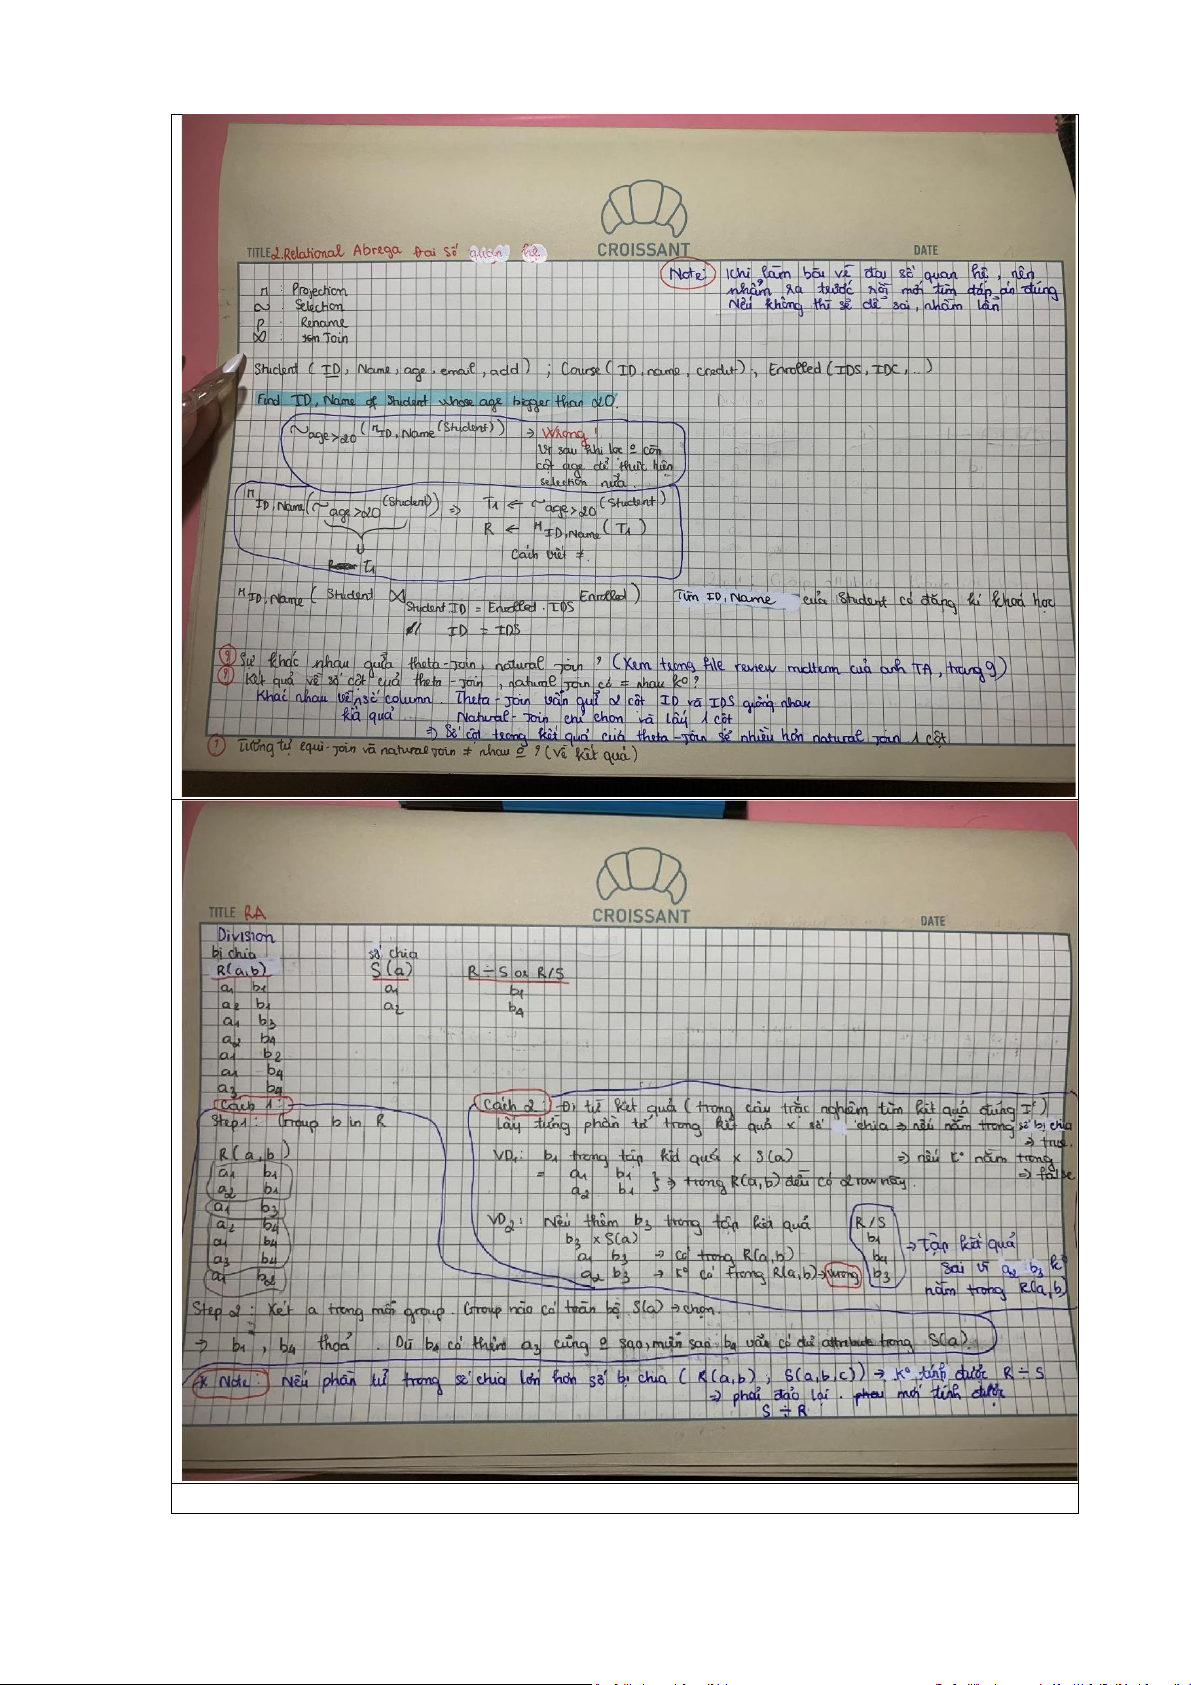 CROISSANT
TITLE 2. Relational Abrega Đại số quan hệ
DATE
Note: Khi làm bài về đại số quan hệ, nên
nhẩm ra trước rồi mới tìm đáp án đúng
Nếu không thì sẽ dễ sai, nhầm lẫn
π : Projection
~ : Selection
ρ : Rename
⋈ : Join
Student (ID, Name, age, email, add) ; Course (ID, name, credit) ; Enrolled (IDS, IDC, ..)
Find ID, Name of Student whose age bigger than 20.
~age>20 (πID, Name (Student)) → Wrong!
Vì sau khi lọc o còn
cột age để thực hiện
selection nữa.
πID, Name (~age>20 (Student)) => T1 ← ~age>20 (Student)
R ← πID, Name (T1)
Cách viết ≠.
T1
πID, Name ( Student ⋈ Student ID = Enrolled . IDS Enrolled) Tìm ID, Name của Student có đăng kí khoá học
// ID = IDS
? Sự khác nhau giữa theta-join, natural join ? (Xem trong file review midterm của anh TA, trang 9)
? Kết quả về số cột của theta-join, natural join có = nhau k° ?
Khác nhau về số column. Theta-join vẫn giữ 2 cột ID và IDS giống nhau
kq quả Natural-Join chỉ chọn và lấy 1 cột
=> Số cột trong kết quả của theta-join sẽ nhiều hơn natural join 1 cột
? Tương tự equi-join và natural join ≠ nhau o ? (về kết quả)
CROISSANT
TITLE RA
DATE
Division
bị chia số chia
R(a,b) S(a) R ÷ S or R/S
a1 b1 a1 b1
a2 b1 a2 b4
a1 b3
a2 b4
a1 b2
a1 b4
a3 b4
Cách 1:
Step 1: Group b in R
R(a,b)
a1 b1
a2 b1
a1 b3
a2 b4
a1 b4
a3 b4
a1 b2
Cách 2: Đi từ kết quả (trong câu trắc nghiệm tìm kết quả đúng)
Lấy từng phần tử trong kết quả x số chia => nếu nằm trong số bị chia
=> true.
VD1: b1 trong tập kết quả x S(a) => nếu k° nằm trong
= a1 b1 => false
a2 b1 } => trong R(a,b) đều có 2 row này.
VD2: Nếu thêm b3 trong tập kết quả R/S
b3 x S(a) b1
a1 b3 → có trong R(a,b) b4
a2 b3 → k° có trong R(a,b) → wrong b3
→ Tập kết quả
sai vì a2 b3 k°
nằm trong R(a,b)
Step 2: Xét a trong mỗi group. Group nào có toàn bộ S(a) → chọn.
=> b1, b4 thoả. Dù b4 có thêm a3 cũng o sao, miễn sao b4 vẫn có đủ attribute trong S(a).
* Note: Nếu phần tử trong số chia lớn hơn số bị chia (R(a,b) ; S(a,b,c)) → k° tính được R ÷ S
=> phải đảo lại. mới tính được
S ÷ R